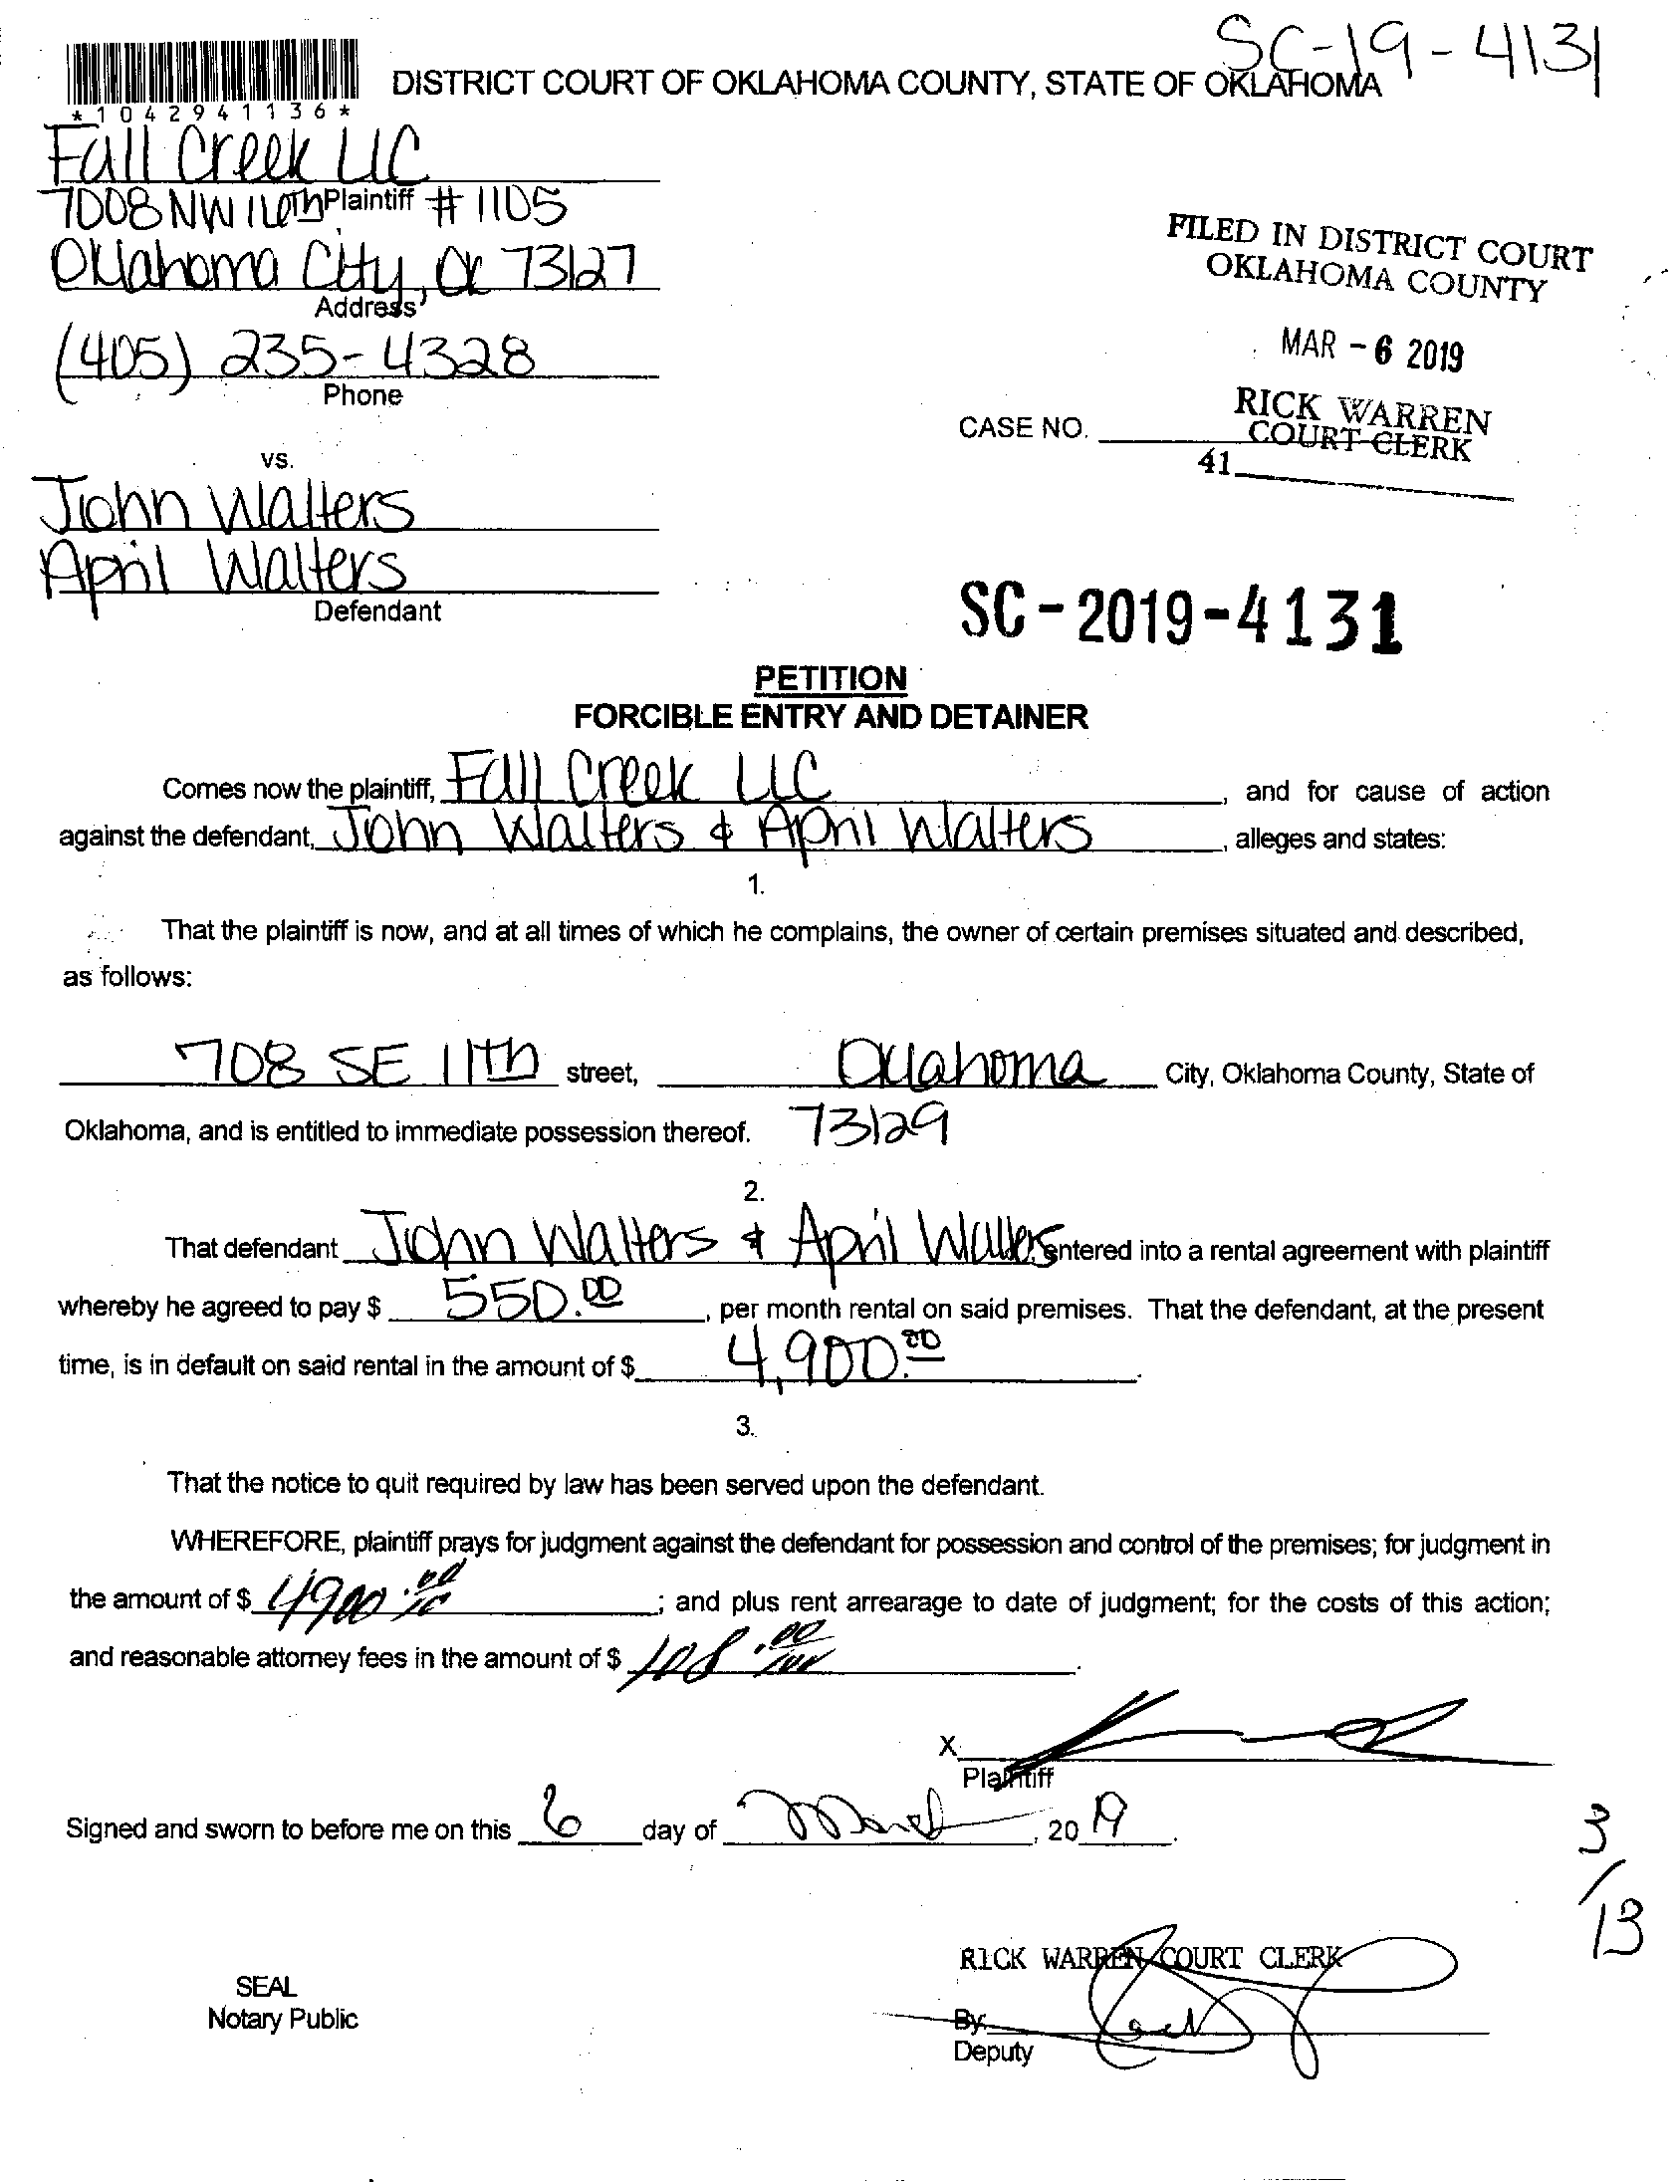 SC-19-4131
DISTRICT COURT OF OKLAHOMA COUNTY, STATE OF OKLAHOMA
*1042941136*
Fall Creek LLC
Plaintiff
7008 NW 16th #1105
Oklahoma City, OK 73127
Address
(405) 235-4328
Phone
FILED IN DISTRICT COURT
OKLAHOMA COUNTY
MAR - 6 2019
RICK WARREN
COURT CLERK
41
CASE NO.
vs.
John Walters
April Walters
Defendant
SC-2019-4131
PETITION
FORCIBLE ENTRY AND DETAINER
Comes now the plaintiff, Fall Creek LLC, and for cause of action
against the defendant, John Walters & April Walters, alleges and states:
1.
That the plaintiff is now, and at all times of which he complains, the owner of certain premises situated and described,
as follows:
708 SE 11th street, Oklahoma City, Oklahoma County, State of
Oklahoma, and is entitled to immediate possession thereof. 73129
2.
That defendant John Walters & April Walters entered into a rental agreement with plaintiff
whereby he agreed to pay $ 550.00, per month rental on said premises. That the defendant, at the present
time, is in default on said rental in the amount of $ 4,900.00.
3.
That the notice to quit required by law has been served upon the defendant.
WHEREFORE, plaintiff prays for judgment against the defendant for possession and control of the premises; for judgment in
the amount of $ 4900.00; and plus rent arrearage to date of judgment; for the costs of this action;
and reasonable attorney fees in the amount of $ 108.00/100.
X
Plaintiff
Signed and sworn to before me on this 6 day of March, 2019.
3/13
RICK WARREN COURT CLERK
SEAL
Notary Public
By
Deputy